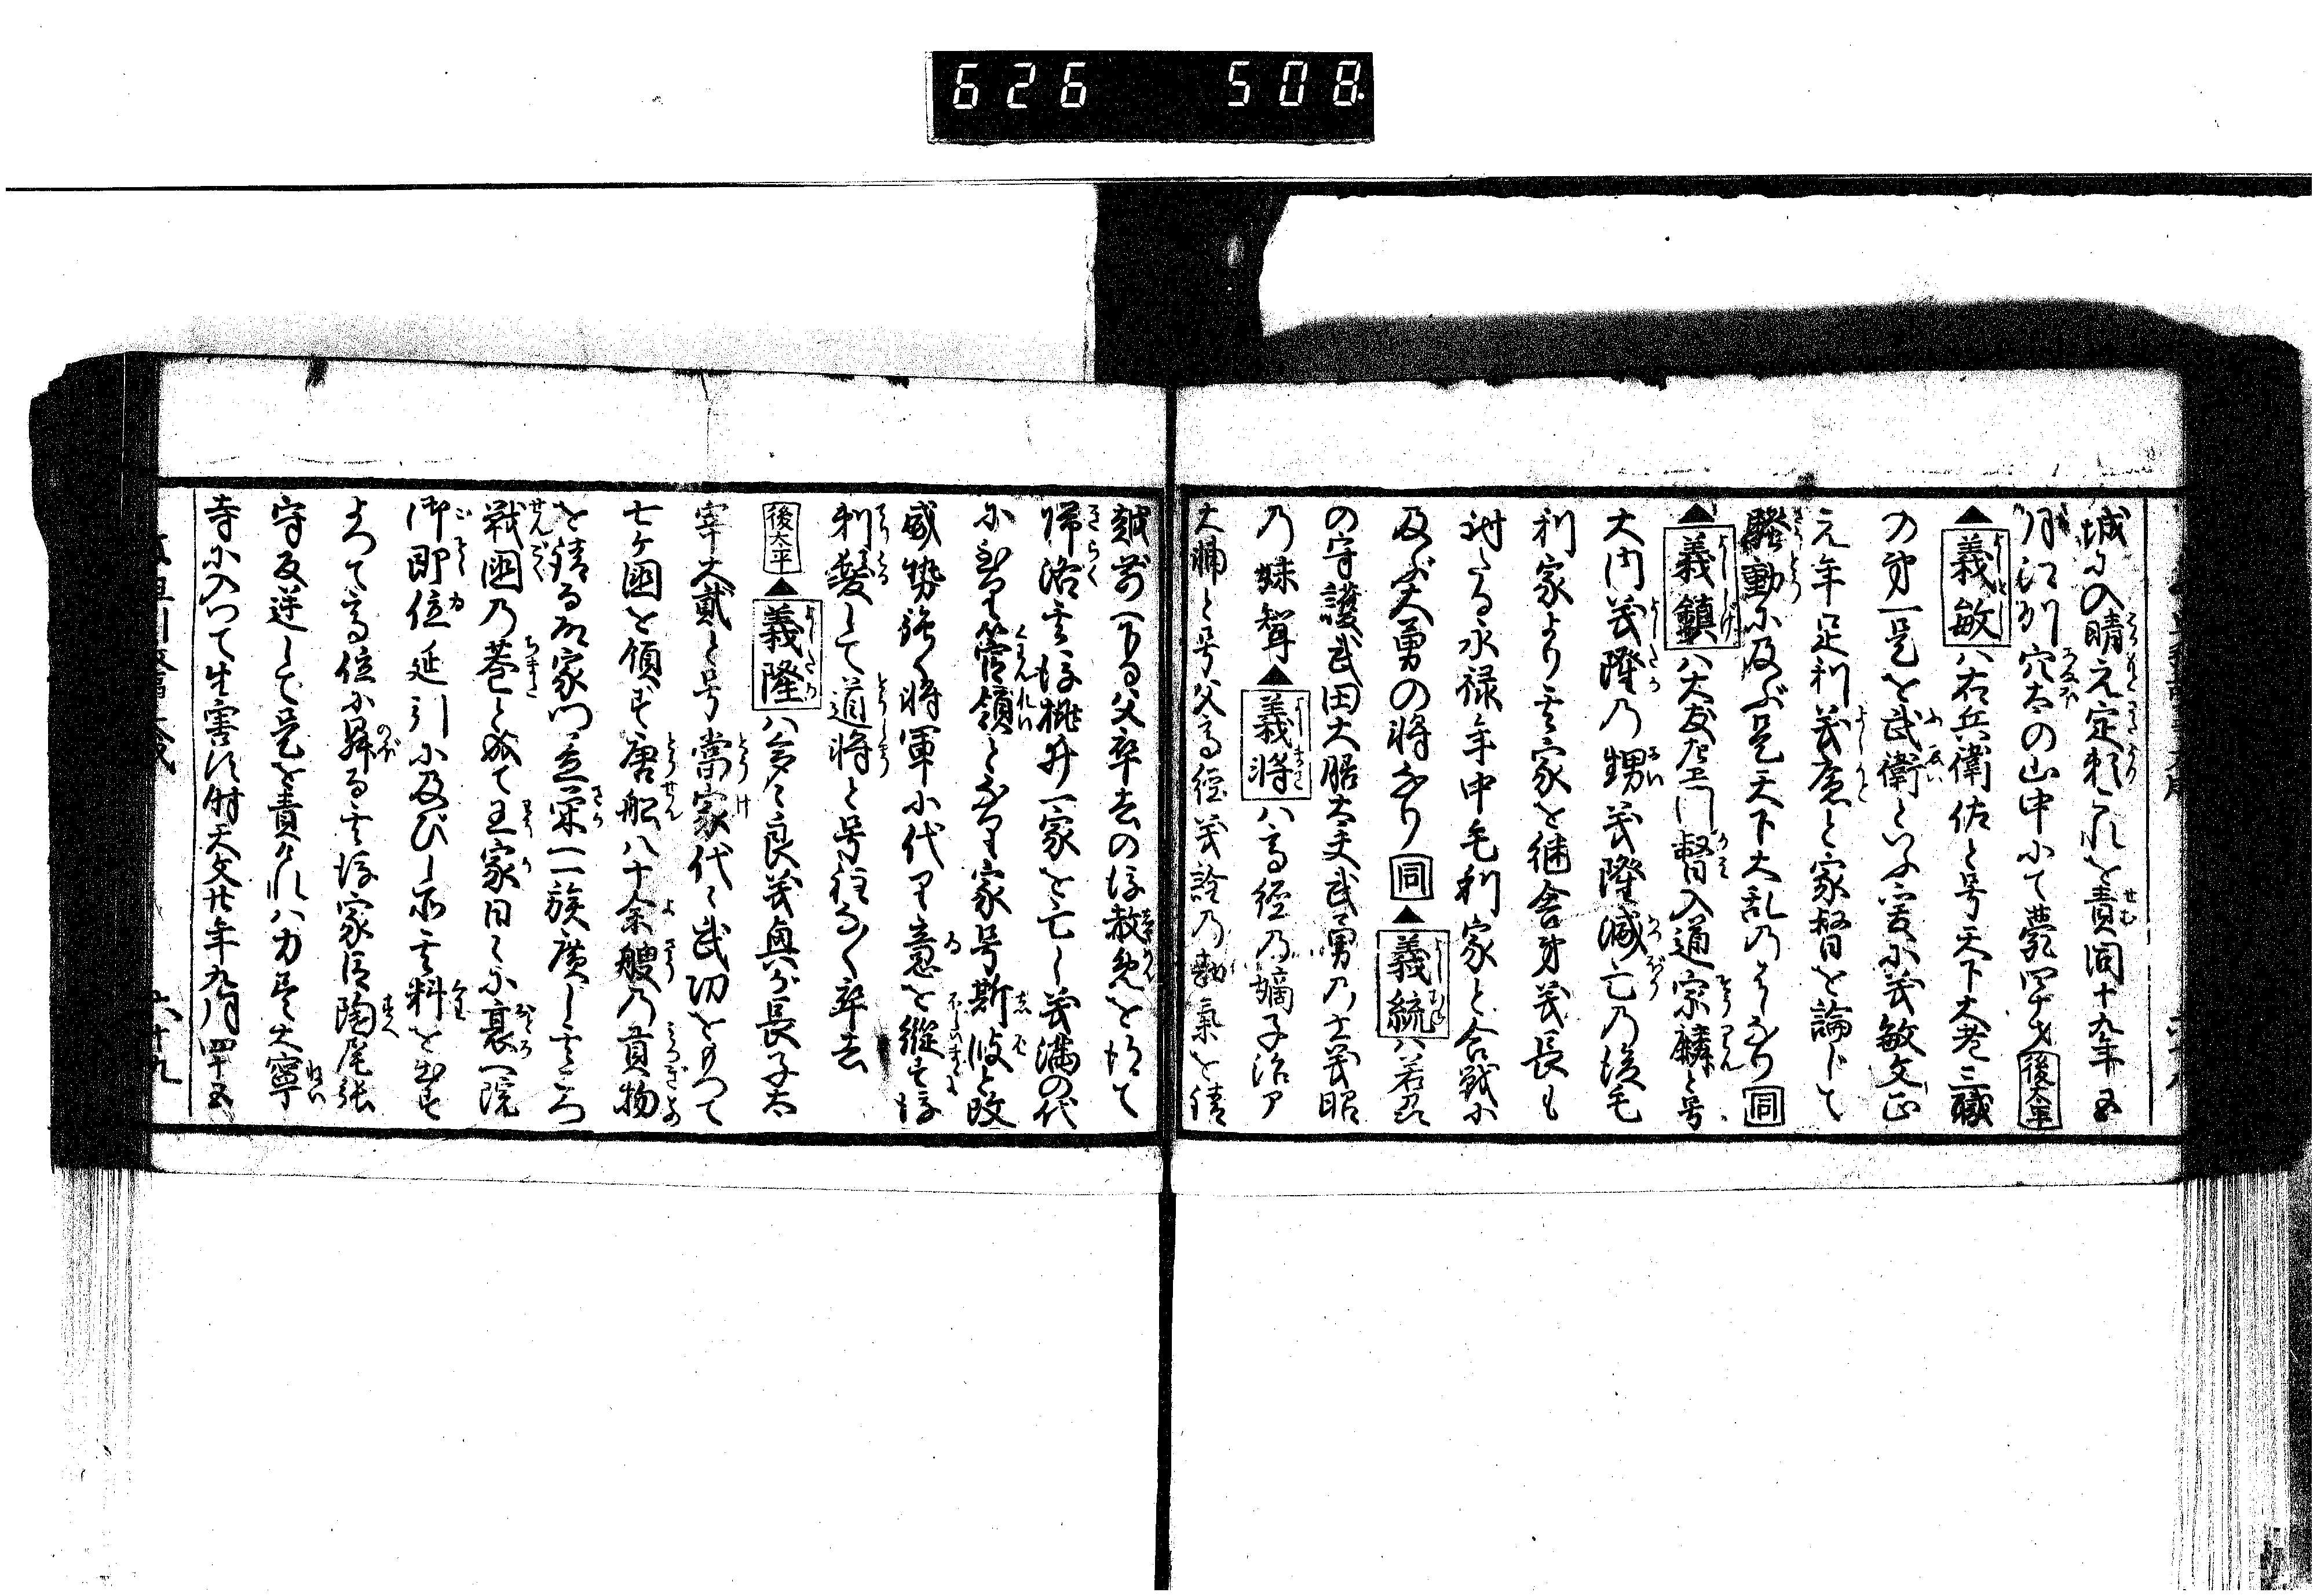 626 508
城に入晴元定頼これを責同十九年五
月江州穴太の山中にて薨四十才後太平
▲義敏ハ右兵衛佐と号天下大老三職
の第一是を武衛といふ爰に義敏文正
元年足利義廉と家督を論じて
騒動に及ぶ是天下大乱のはしなり同
▲義鎮ハ大友左衛門督入道宗麟と号
大内義隆乃甥義隆滅亡乃後毛
利家より其家を継舎弟義長も
討たる永禄年中毛利家と合戦に
及ぶ大勇の将なり同▲義統ハ若州
の守護武田大膳大夫武勇乃士義昭
乃妹聟▲義将ハ高経乃嫡子治ア
大輔と号父高経義詮乃勘気を請
越前へ下る父卒去の後赦免を得て
帰洛其後桃井一家を亡し義満の代
に至り管領となり家号斯波と改
威勢強く将軍に代り意を縦にす後
剃髪して道将と号程なく卒去
後太平▲義隆ハ多々良義興が長子太
宰大貳と号當家代々武功をもつて
七ケ国を領ず唐船八十余艘乃貢物
を請る故家門立栄一族廣し其ころ
戦国乃巷と成て王家日々に衰へ院
御即位延引に及びし亦其料を出す
よつて高位に昇る其後家臣陶尾張
守反逆して是を責けれハ力尽大寧
寺に入つて生害す時天文廿年九月四十五
六十九